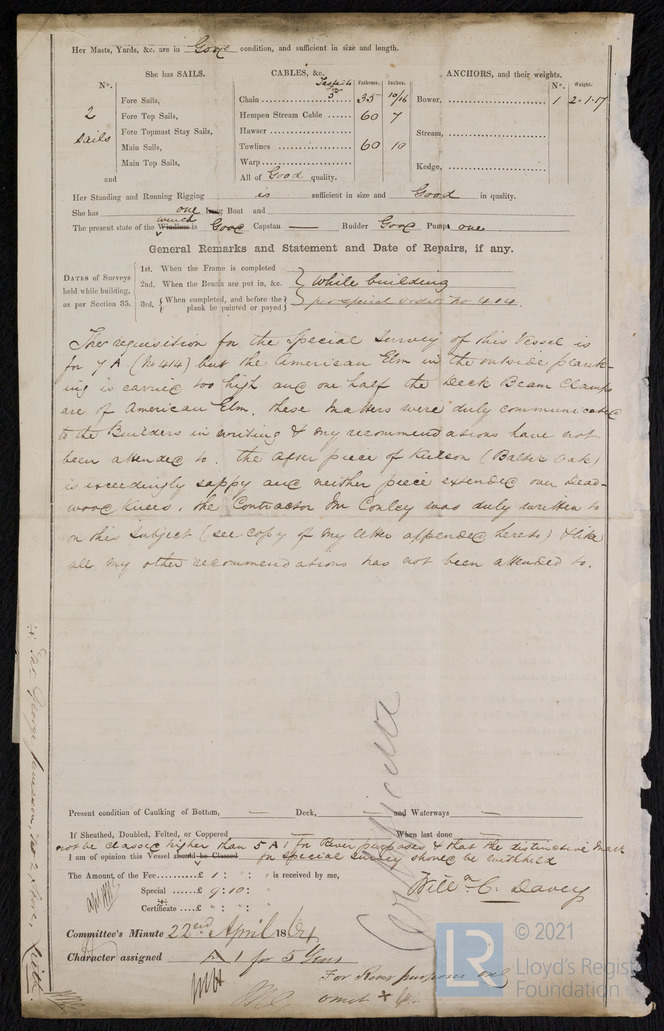 Her Masts, Yards, &c. are in Good condition, and sufficient in size and length.
She has SAILS.
No.
2
Sails
Fore Sails,
Fore Top Sails,
Fore Topmast Stay Sails,
Main Sails,
Main Top Sails,
and
CABLES, &c. Fathoms. Inches.
Tested to
5
Chain 35 10/16
Hempen Stream Cable 60 7
Hawser
Towlines 60 10
Warp
All of Good quality.
ANCHORS, and their weights.
No. Weight.
Bower, 1 2.1.17
Stream,
Kedge,
Her Standing and Running Rigging is sufficient in size and Good in quality.
She has one Long Boat and
The present state of the Windlass winch is Good Capstan — Rudder Good Pumps one
General Remarks and Statement and Date of Repairs, if any.
DATES of Surveys held while building, as per Section 35.
1st. When the Frame is completed
2nd. When the Beams are put in, &c.
3rd. { When completed, and before the plank be painted or payed }
While building
per special order No 414.
The requisition for the Special Survey of this Vessel is
for 7 A (No 414) but the American Elm in the outside plank-
ing is carried too high and one half the Deck Beam Clamps
are of American Elm, these matters were duly communicated
to the Builders in writing & my recommendations have not
been attended to. The after piece of Keelson (Baltic Oak)
is exceedingly sappy and neither piece extended over Dead-
wood Knees. The Contractor Mr Conley was duly written to
on this subject (see copy of my letter appended hereto) & like
all my other recommendations has not been attended to.
Present condition of Caulking of Bottom, — Deck, — and Waterways —
If Sheathed, Doubled, Felted, or Coppered When last done —
not be classed higher than 5 A 1 for River purposes & that the distinctive mark
I am of opinion this Vessel should be Classed for Special Survey should be withheld
The Amount of the Fee £ 1 : " : " is received by me,
Special £ 9 : 10 :
Certificate £ " : " :
Willm C. Davey
Certificate
Committee's Minute 22nd April 1864
Character assigned A 1 for 5 Years
For River purposes only
omit
LR
© 2021
Lloyd's Register
Foundation